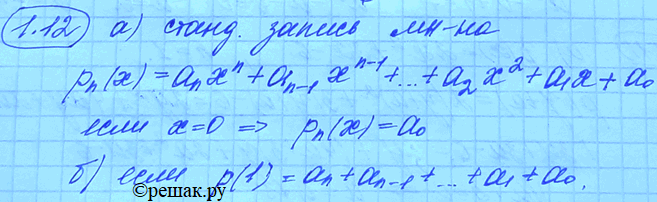 1.12 а) станд. запись мн-на
pₙ(x) = aₙxⁿ + aₙ₋₁xⁿ⁻¹ + ... + a₂x² + a₁x + a₀
если x=0 => pₙ(x) = a₀
б) если p(1) = aₙ + aₙ₋₁ + ... + a₁ + a₀.
©решак.ру